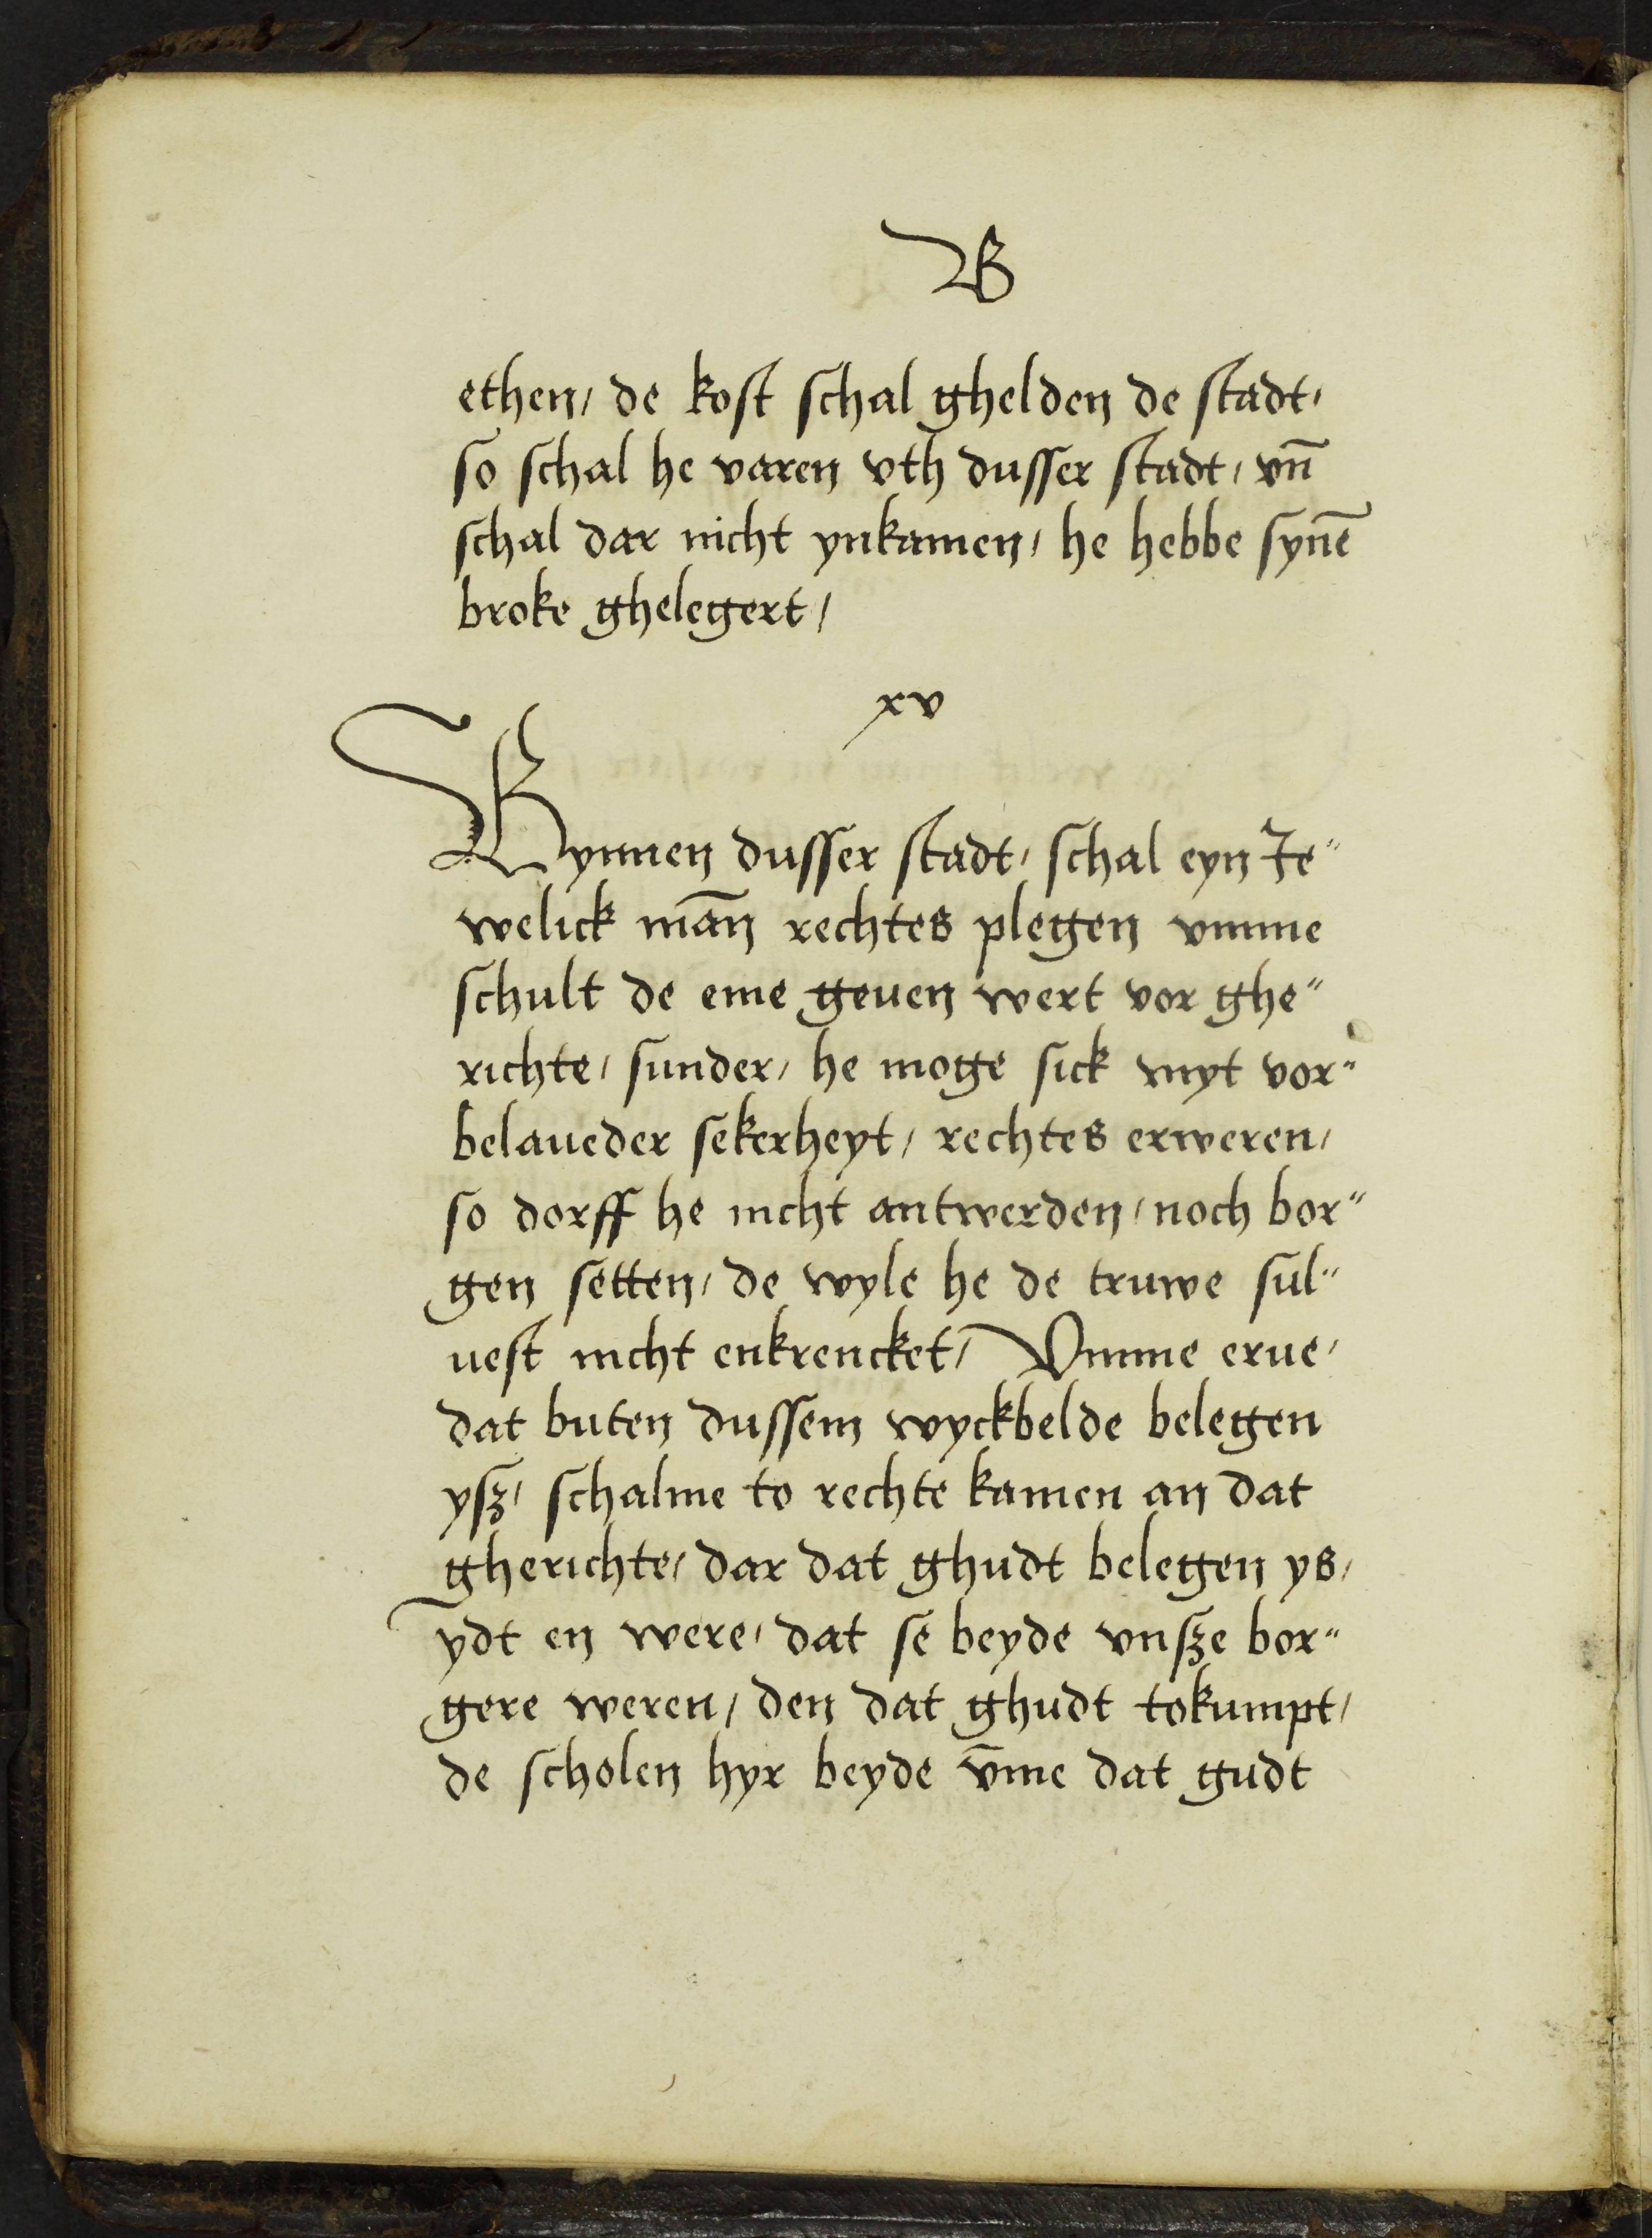 B
ethen / de kost schal ghelden de stadt /
so schal he varen vth dusser stadt / vn̄
schal dar nicht ynkamen / he hebbe synē
broke ghelegert /
xv
Bynnen dusser stadt / schal eyn Je"
welick mān rechtes plegen vmme
schult de eme geuen wert vor ghe"
richte / sunder / he moge sick myt vor"
belaueder sekerheyt / rechtes erweren /
so dorff he nicht antwerden / noch bor"
gen setten / de wyle he de truwe sul"
uest nicht enkrencket / Vmme erue /
dat buten dussem wyckbelde belegen
ysz / schalme to rechte kamen an dat
gherichte / dar dat ghudt belegen ys /
ydt en were / dat se beyde vnsze bor"
gere weren / den dat ghudt tokumpt /
de scholen hyr beyde v̄me dat gudt